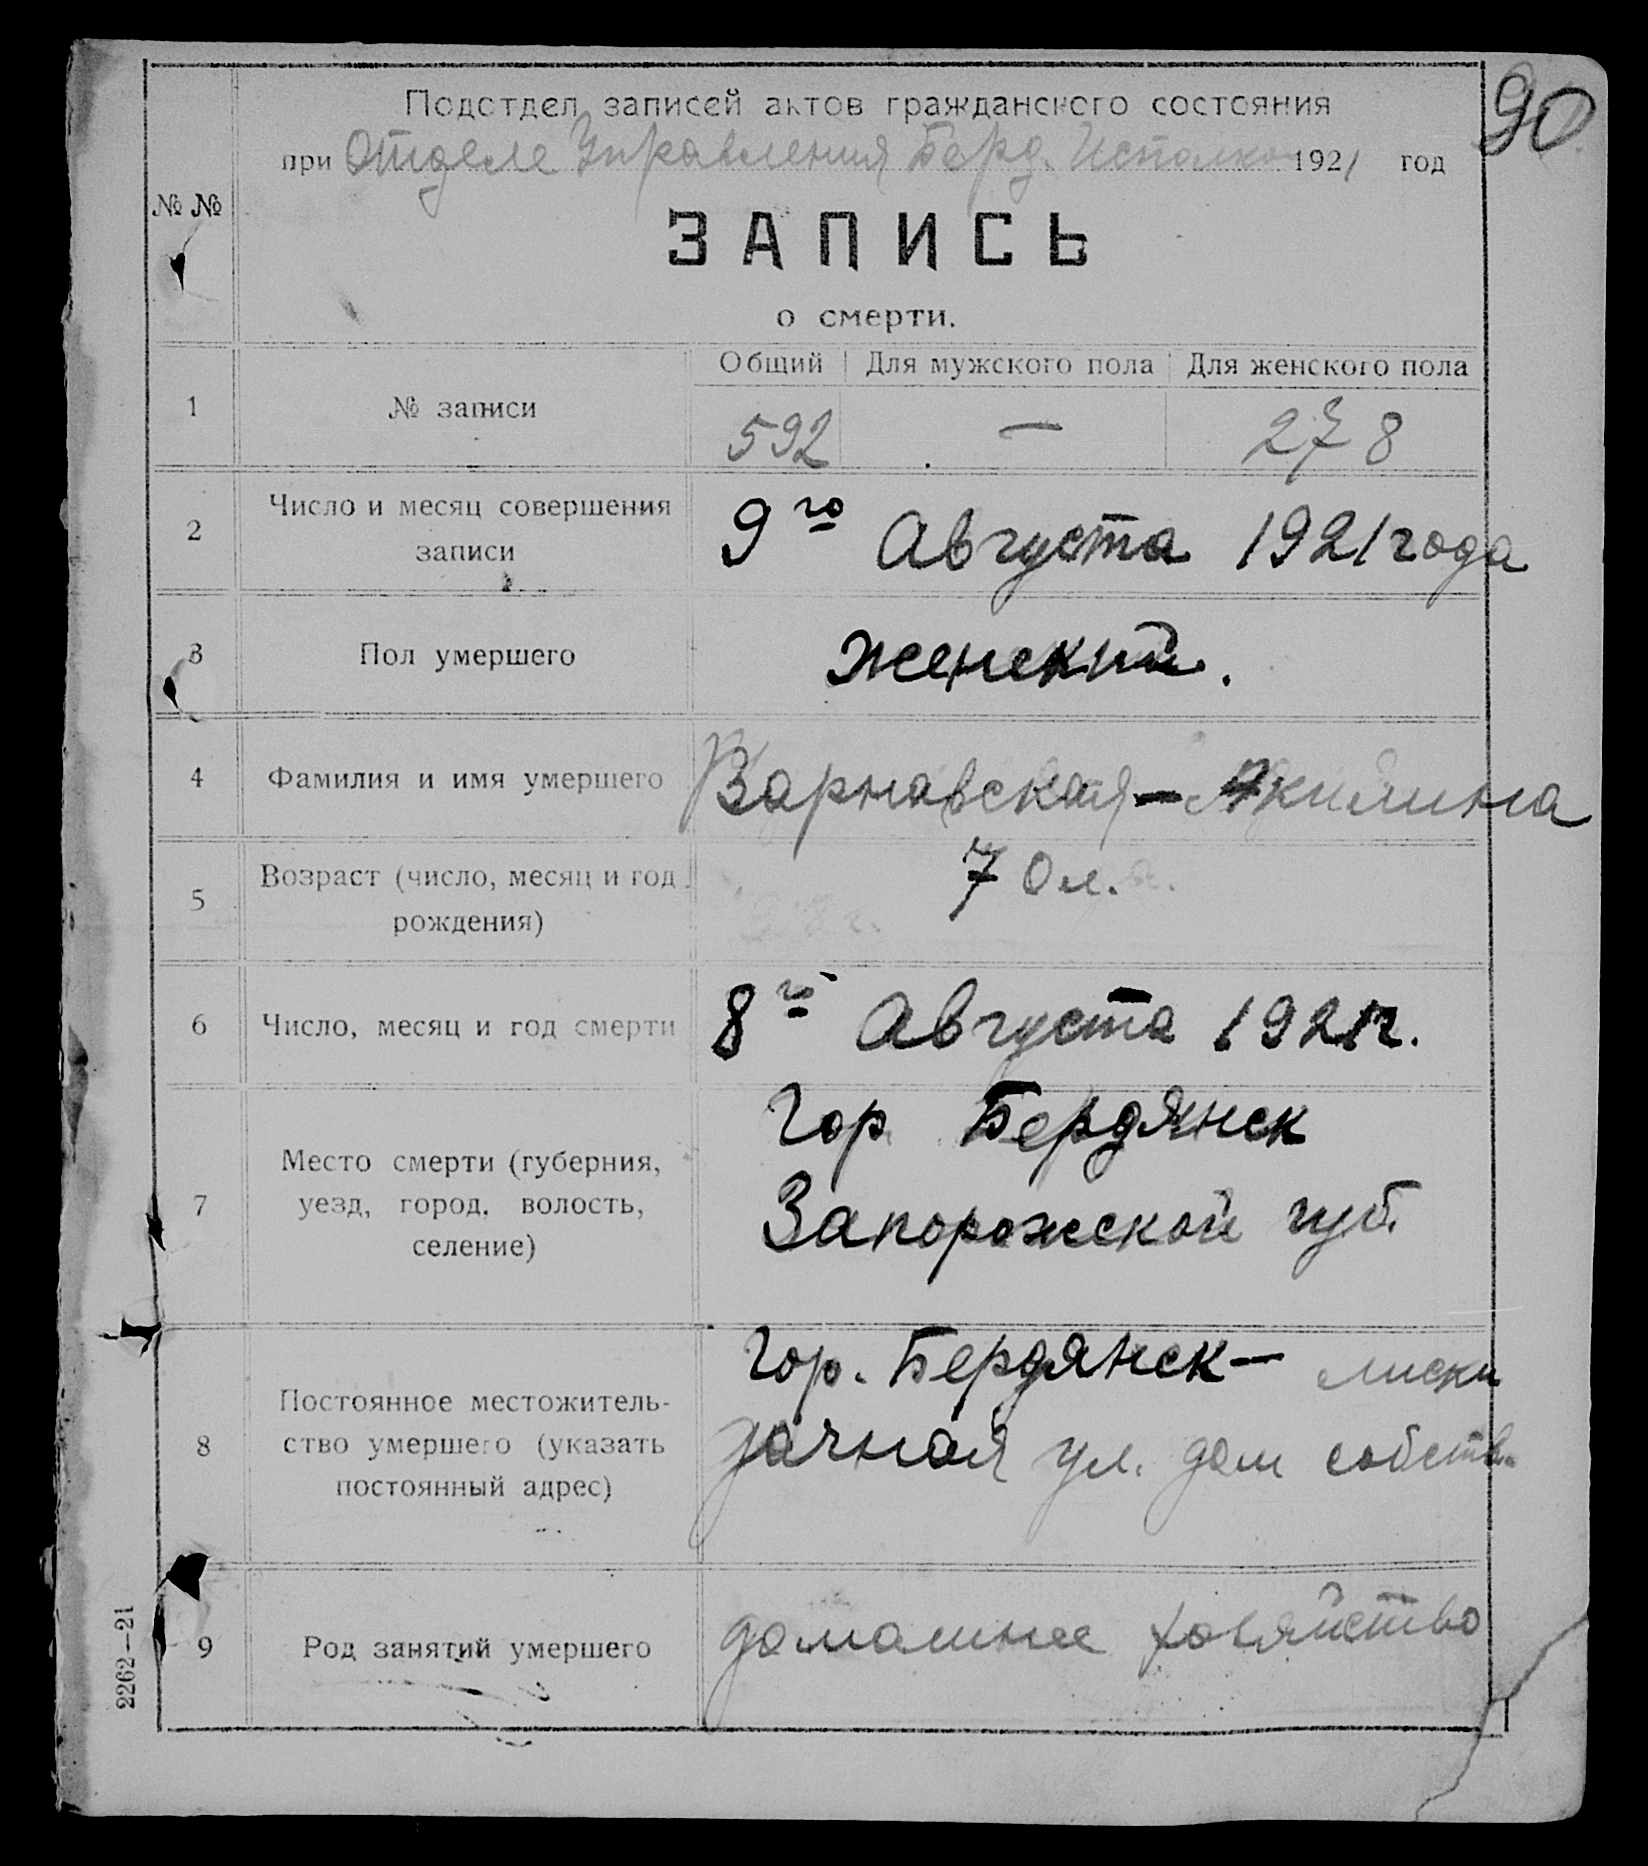 90
Подотдел записей актов гражданского состояния
при Отделе Управления Берд. Исполко 1921 год
№ №
ЗАПИСЬ
о смерти.
Общий Для мужского пола Для женского пола
1 № записи 592 — 278
2 Число и месяц совершения записи
9го Августа 1921 года
3 Пол умершего женский.
4 Фамилия и имя умершего Варнавская — Акилина
5 Возраст (число, месяц и год рождения)
70 л.
6 Число, месяц и год смерти 8го Августа 1921 г.
7 Место смерти (губерния,
уезд, город, волость,
селение)
Гор Бердянск
Запорожской губ.
8 Постоянное местожитель-
ство умершего (указать
постоянный адрес)
Гор. Бердянск — лиски
дачная ул. дом собств.
9 Род занятий умершего домашнее хозяйство
2262—21